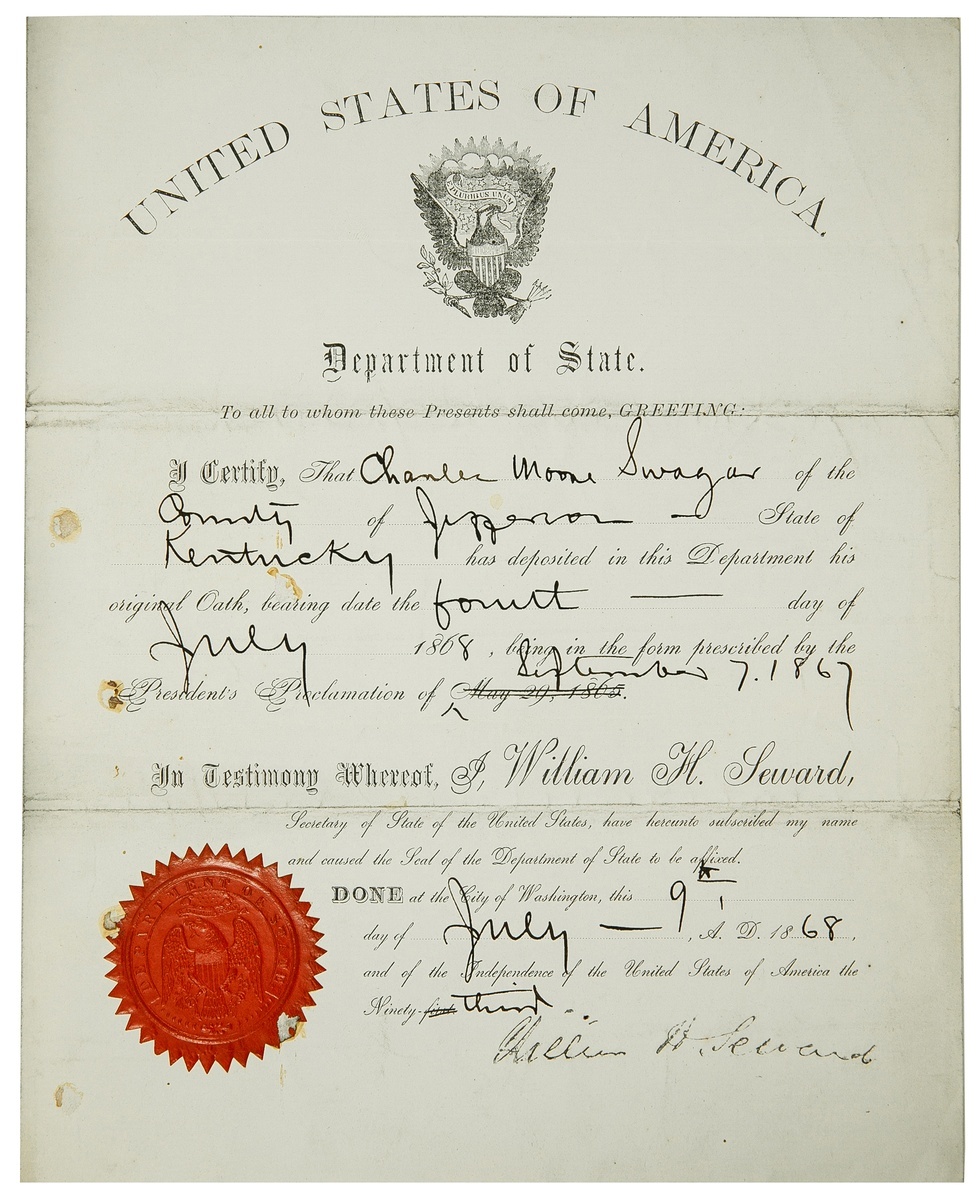 UNITED STATES OF AMERICA.
E PLURIBUS UNUM
Department of State.
To all to whom these Presents shall come, GREETING:
I Certify, That Charles Moore Swagar of the
County of Jefferson — State of
Kentucky has deposited in this Department his
original Oath, bearing date the fourth — day of
July 1868, being in the form prescribed by the
September 7. 1867
President's Proclamation of May 29, 1865.
In Testimony Whereof, I, William H. Seward,
Secretary of State of the United States, have hereunto subscribed my name
and caused the Seal of the Department of State to be affixed.
DONE at the City of Washington, this 9th
day of July —, A. D. 1868,
and of the Independence of the United States of America the
Ninety-first third..
William H. Seward